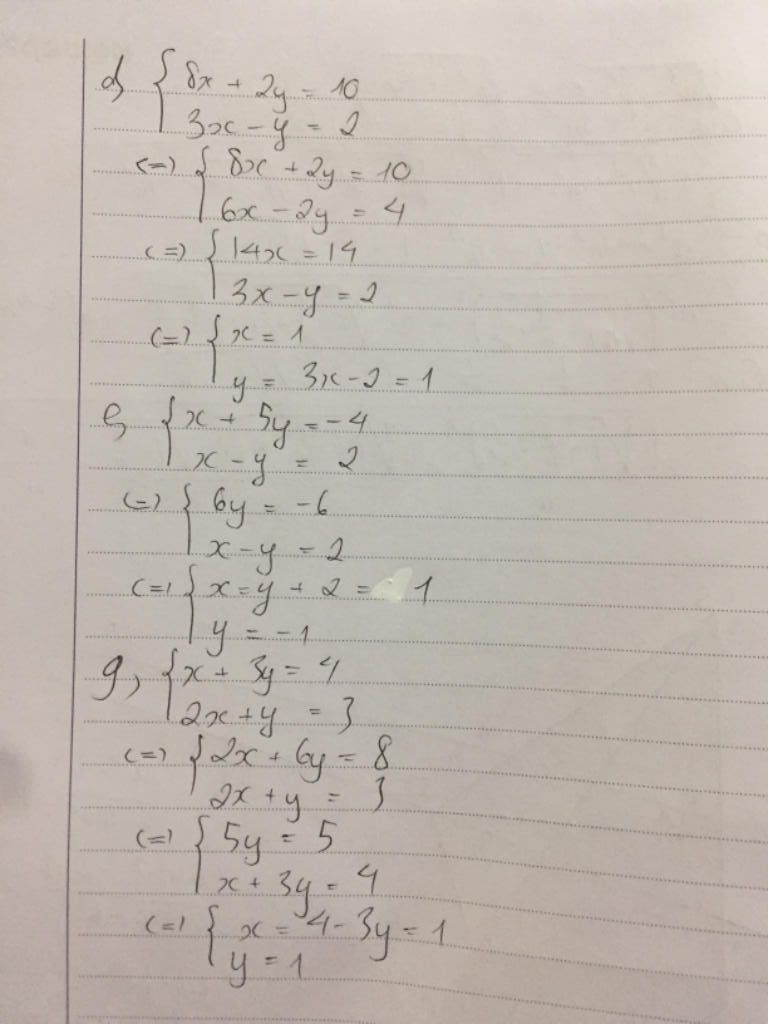 d, { 8x + 2y = 10
3x - y = 2
(=) { 8x + 2y = 10
6x - 2y = 4
(=) { 14x = 14
3x - y = 2
(=) { x = 1
y = 3x - 2 = 1
e, { x + 5y = -4
x - y = 2
(=) { 6y = -6
x - y = 2
(=) { x = y + 2 = 1
y = -1
g, { x + 3y = 4
2x + y = 3
(=) { 2x + 6y = 8
2x + y = 3
(=) { 5y = 5
x + 3y = 4
(=) { x = 4 - 3y = 1
y = 1